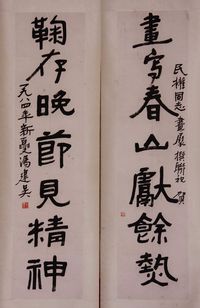 畫寫春山獻餘熱
民權同志畫展撰聯祝賀
鞠存晚節見精神
一九八四年新夏馮建吳